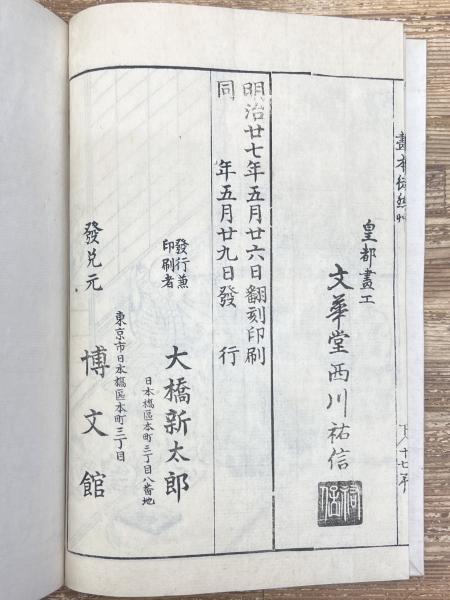 畫本徒然艸
下ノ十七終
皇都畫工
文華堂西川祐信
祐信
明治廿七年五月廿六日翻刻印刷
同年五月廿九日發行
發行兼
印刷者
大橋新太郎
日本橋區本町三丁目八番地
東京市日本橋區本町三丁目
發兌元
博文館